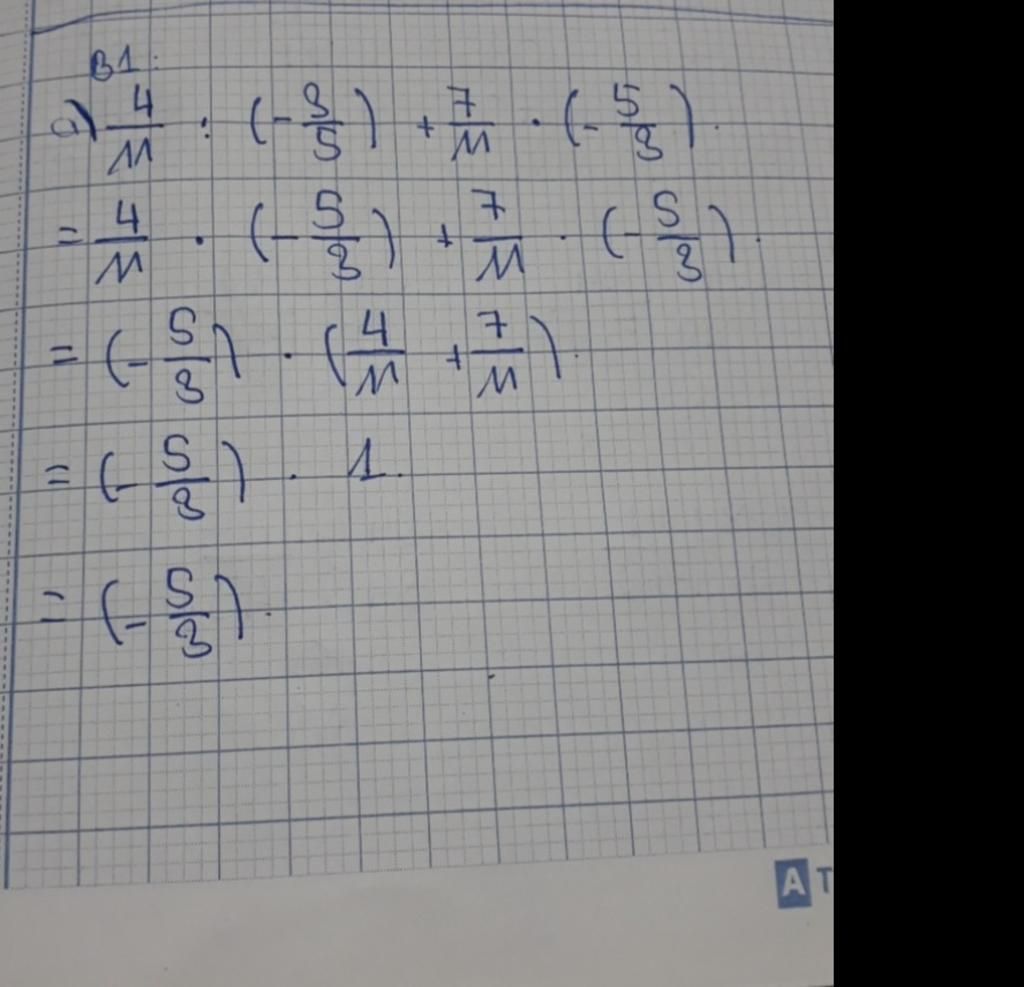 B1:
a) 4/11 : (-3/5) + 7/11 · (-5/3).
= 4/11 · (-5/3) + 7/11 · (-5/3).
= (-5/3) · (4/11 + 7/11).
= (-5/3) · 1.
= (-5/3).
A